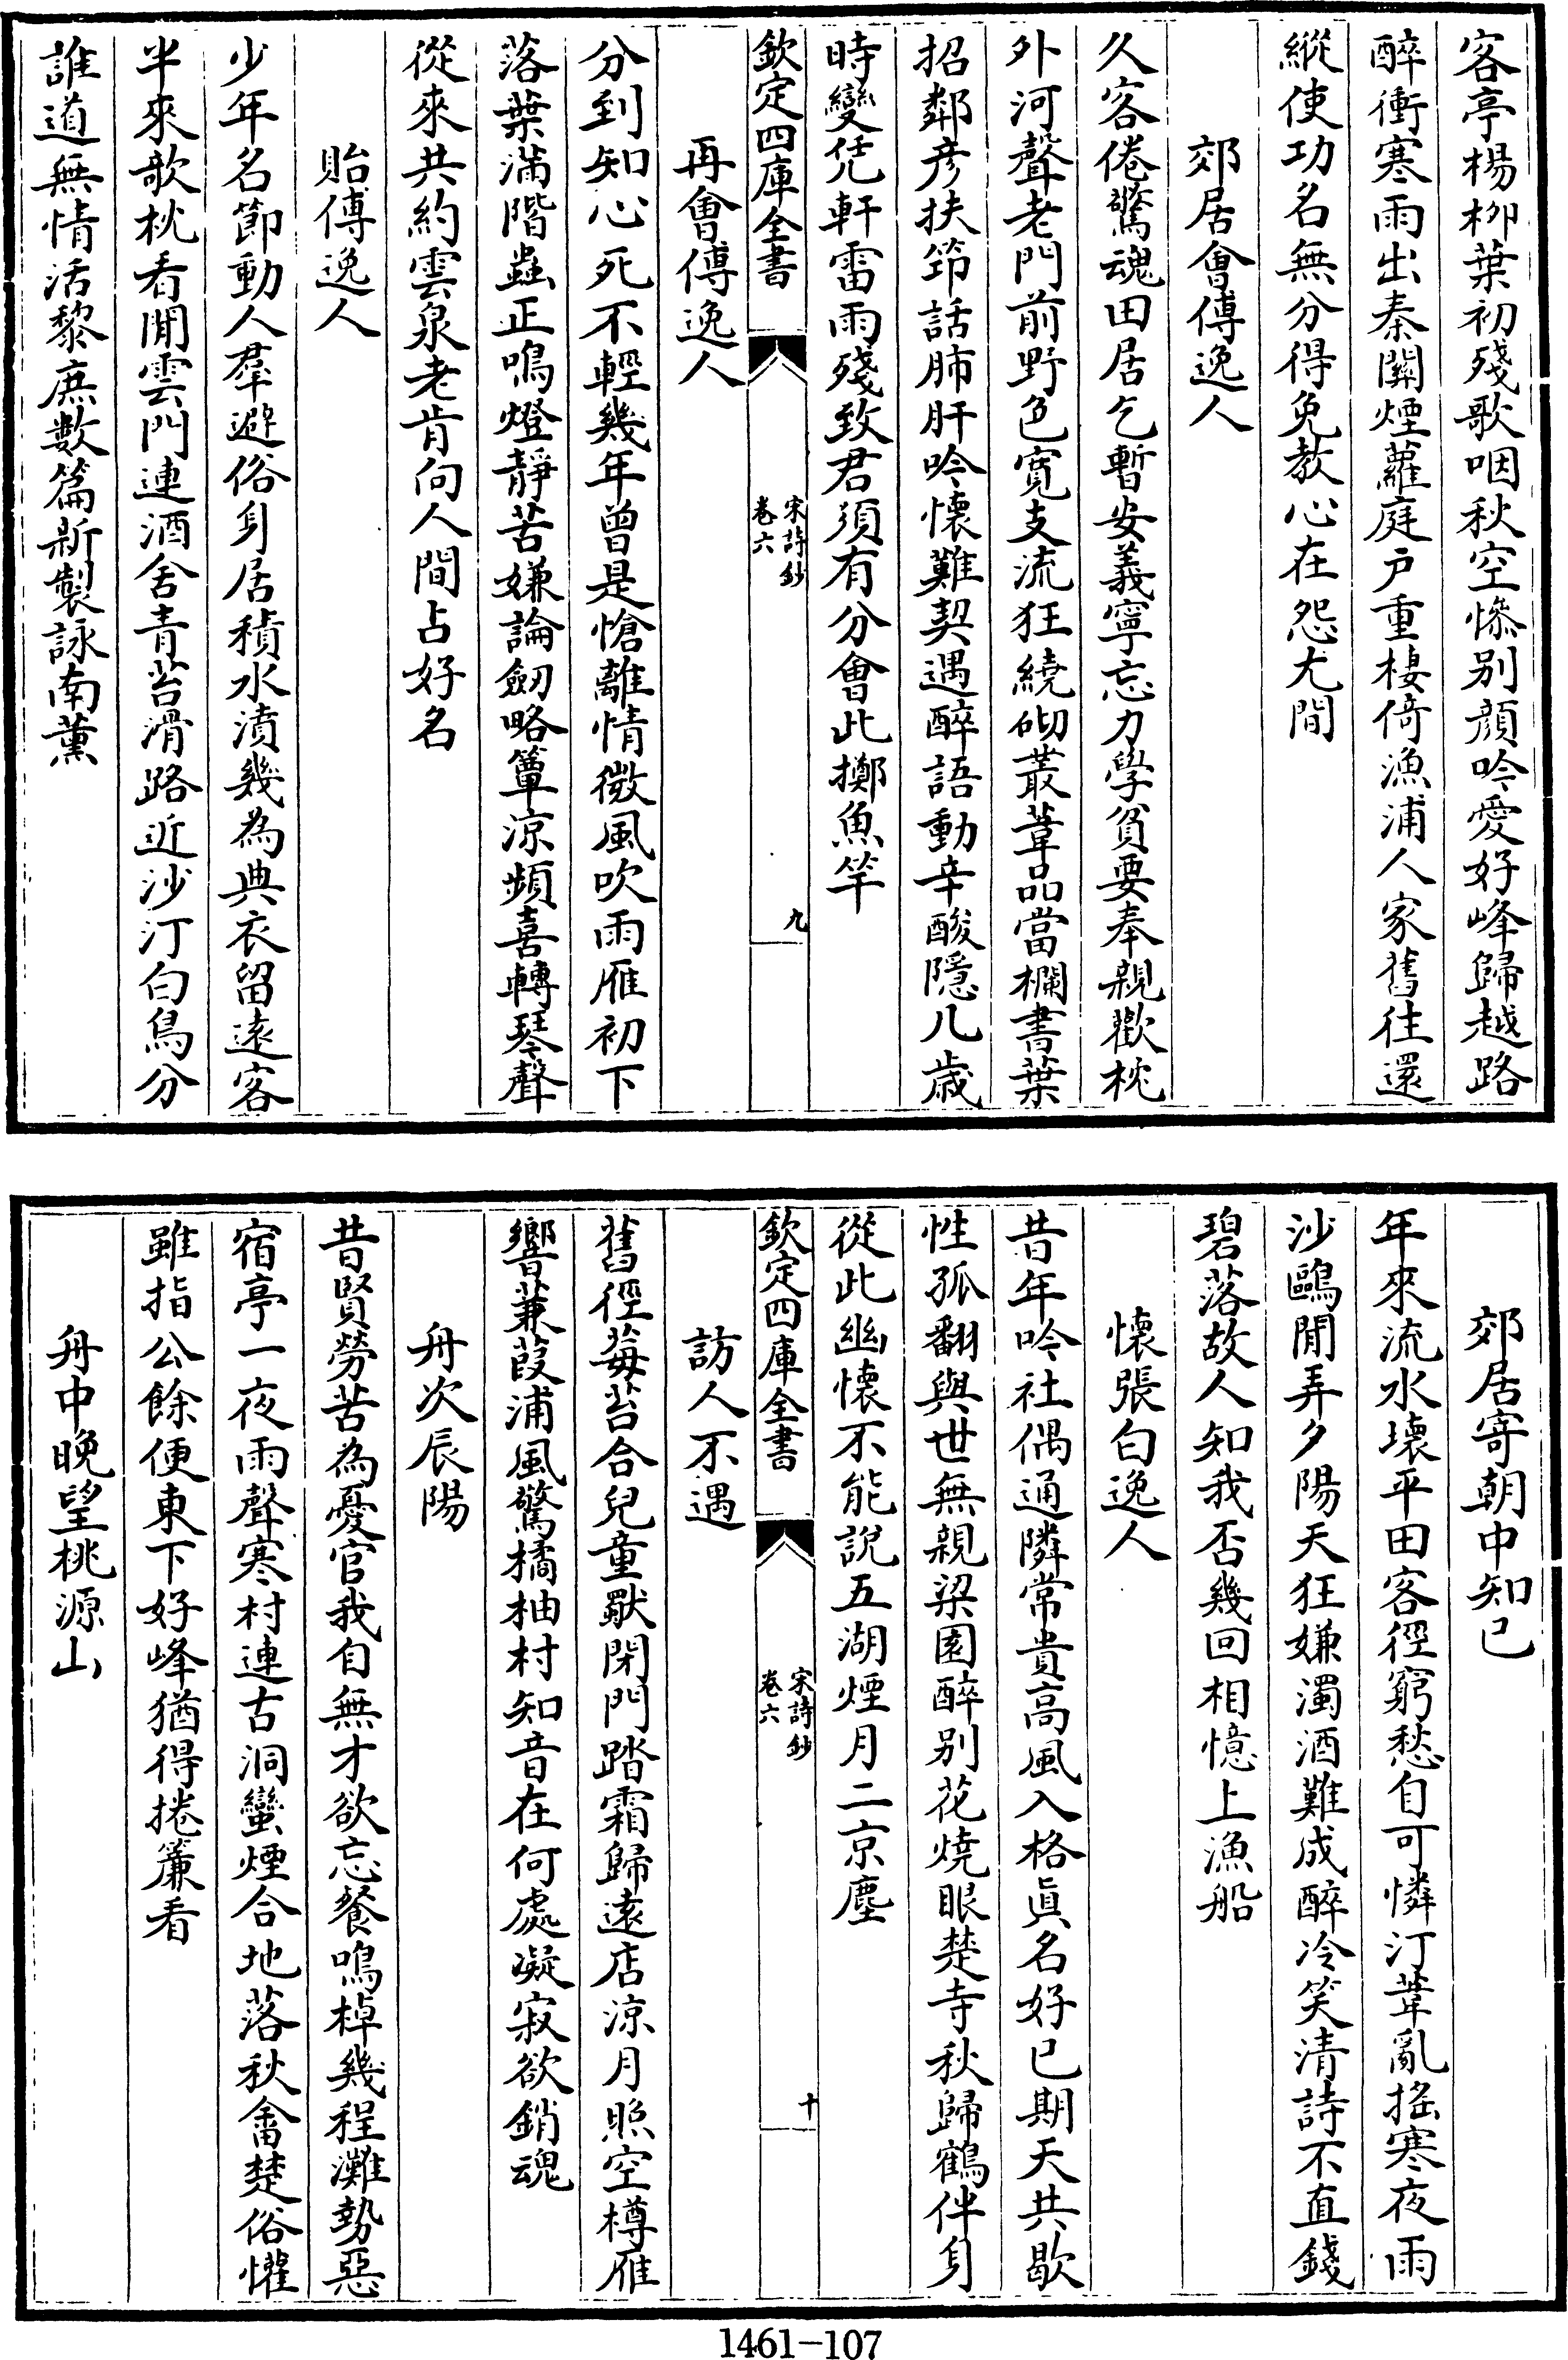 客亭楊柳葉初殘歌咽秋空慘别顔吟愛好峰歸越路
醉衝寒雨出秦關煙蘿庭戸重棲倚漁浦人家舊往還
縱使功名無分得免教心在怨尤間
郊居會傅逸人
久客倦驚魂田居乞暫安義寧忘力學貧要奉親歡枕
外河聲老門前野色寛支流狂繞砌叢葦品當欄書葉
招鄰彦扶筇話肺肝吟懷難契遇醉語動辛酸隠几歳
時變凭軒雷雨殘致君須有分會此擲魚竿
欽定四庫全書
宋詩鈔
卷六
九
再會傅逸人
分到知心死不輕幾年曾是愴離情微風吹雨雁初下
落葉滿階蟲正鳴燈靜苦嫌論劒略簟凉頻喜轉琴聲
從來共約雲泉老肯向人間占好名
貽傅逸人
少年名節動人羣避俗身居積水濆幾為典衣留遠客
半來歌枕看閒雲門連酒舍青苔滑路近沙汀白鳥分
誰道無情活黎庶數篇新製詠南薰
郊居寄朝中知已
年來流水壞平田客徑窮愁自可憐汀葦亂摇寒夜雨
沙鷗閒弄夕陽天狂嫌濁酒難成醉冷笑清詩不直錢
碧落故人知我否幾回相憶上漁船
懷張白逸人
昔年吟社偶通隣常貴高風入格眞名好已期天共歇
性孤翻與世無親梁園醉别花燒眼楚寺秋歸鶴伴身
從此幽懷不能說五湖煙月二京塵
欽定四庫全書
宋詩鈔
卷六
十
訪人不遇
舊徑莓苔合兒童厭閉門踏霜歸遠店凉月照空樽雁
響蒹葭浦風驚橘柚村知音在何處凝寂欲銷魂
舟次辰陽
昔賢勞苦為憂官我自無才欲忘餐鳴棹幾程灘勢惡
宿亭一夜雨聲寒村連古洞蠻煙合地落秋畬楚俗懽
雖指公餘便東下好峰猶得捲簾看
舟中晚望桃源山
1461-107